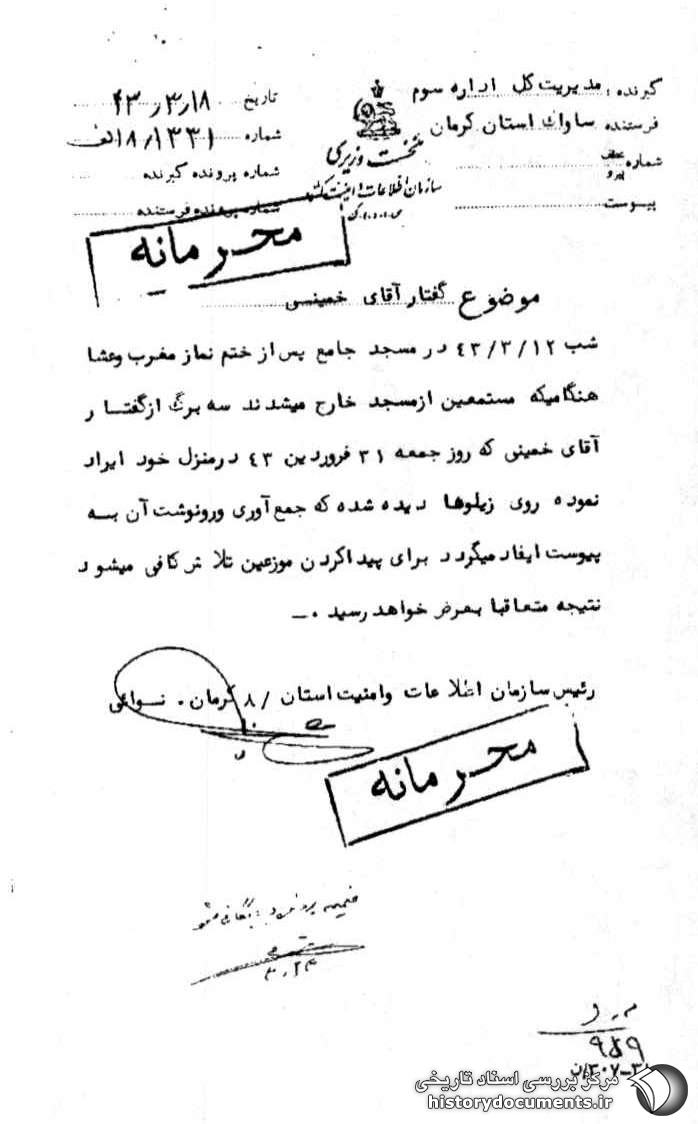 گیرنده : مدیریت کل اداره سوم
فرستنده ساواک استان کرمان
شماره عطف پیرو
پیوست
نخست وزیری
سازمان اطلاعات و امنیت کشور
س.ا.و.ا.ک
تاریخ ۴۳٫۳٫۱۸
شماره ۱۸٫۱۳۳۱الف
شماره پرونده گیرنده
شماره پرونده فرستنده
محرمانه
موضوع گفتار آقای خمینی
شب ۴۳/۳/۱۲ در مسجد جامع پس از ختم نماز مغرب وعشا
هنگامیکه مستمعین ازمسجد خارج میشدند سه برگ ازگفتار
آقای خمینی که روز جمعه ۳۱ فروردین ۴۳ درمنزل خود ایراد
نموده روی زیلوها دیده شده که جمع آوری ورونوشت آن به
پیوست ایفاد میگردد برای پیداکردن موزعین تلاش کافی میشود
نتیجه متعاقبا بعرض خواهد رسید ۰ــ
رئیس سازمان اطلاعات وامنیت استان /۸ کرمان ۰ نوائی
محرمانه
ضمیمه پرونده
۳٫۲۴
۹۵۹
مرکز بررسی اسناد تاریخی
historydocuments.ir